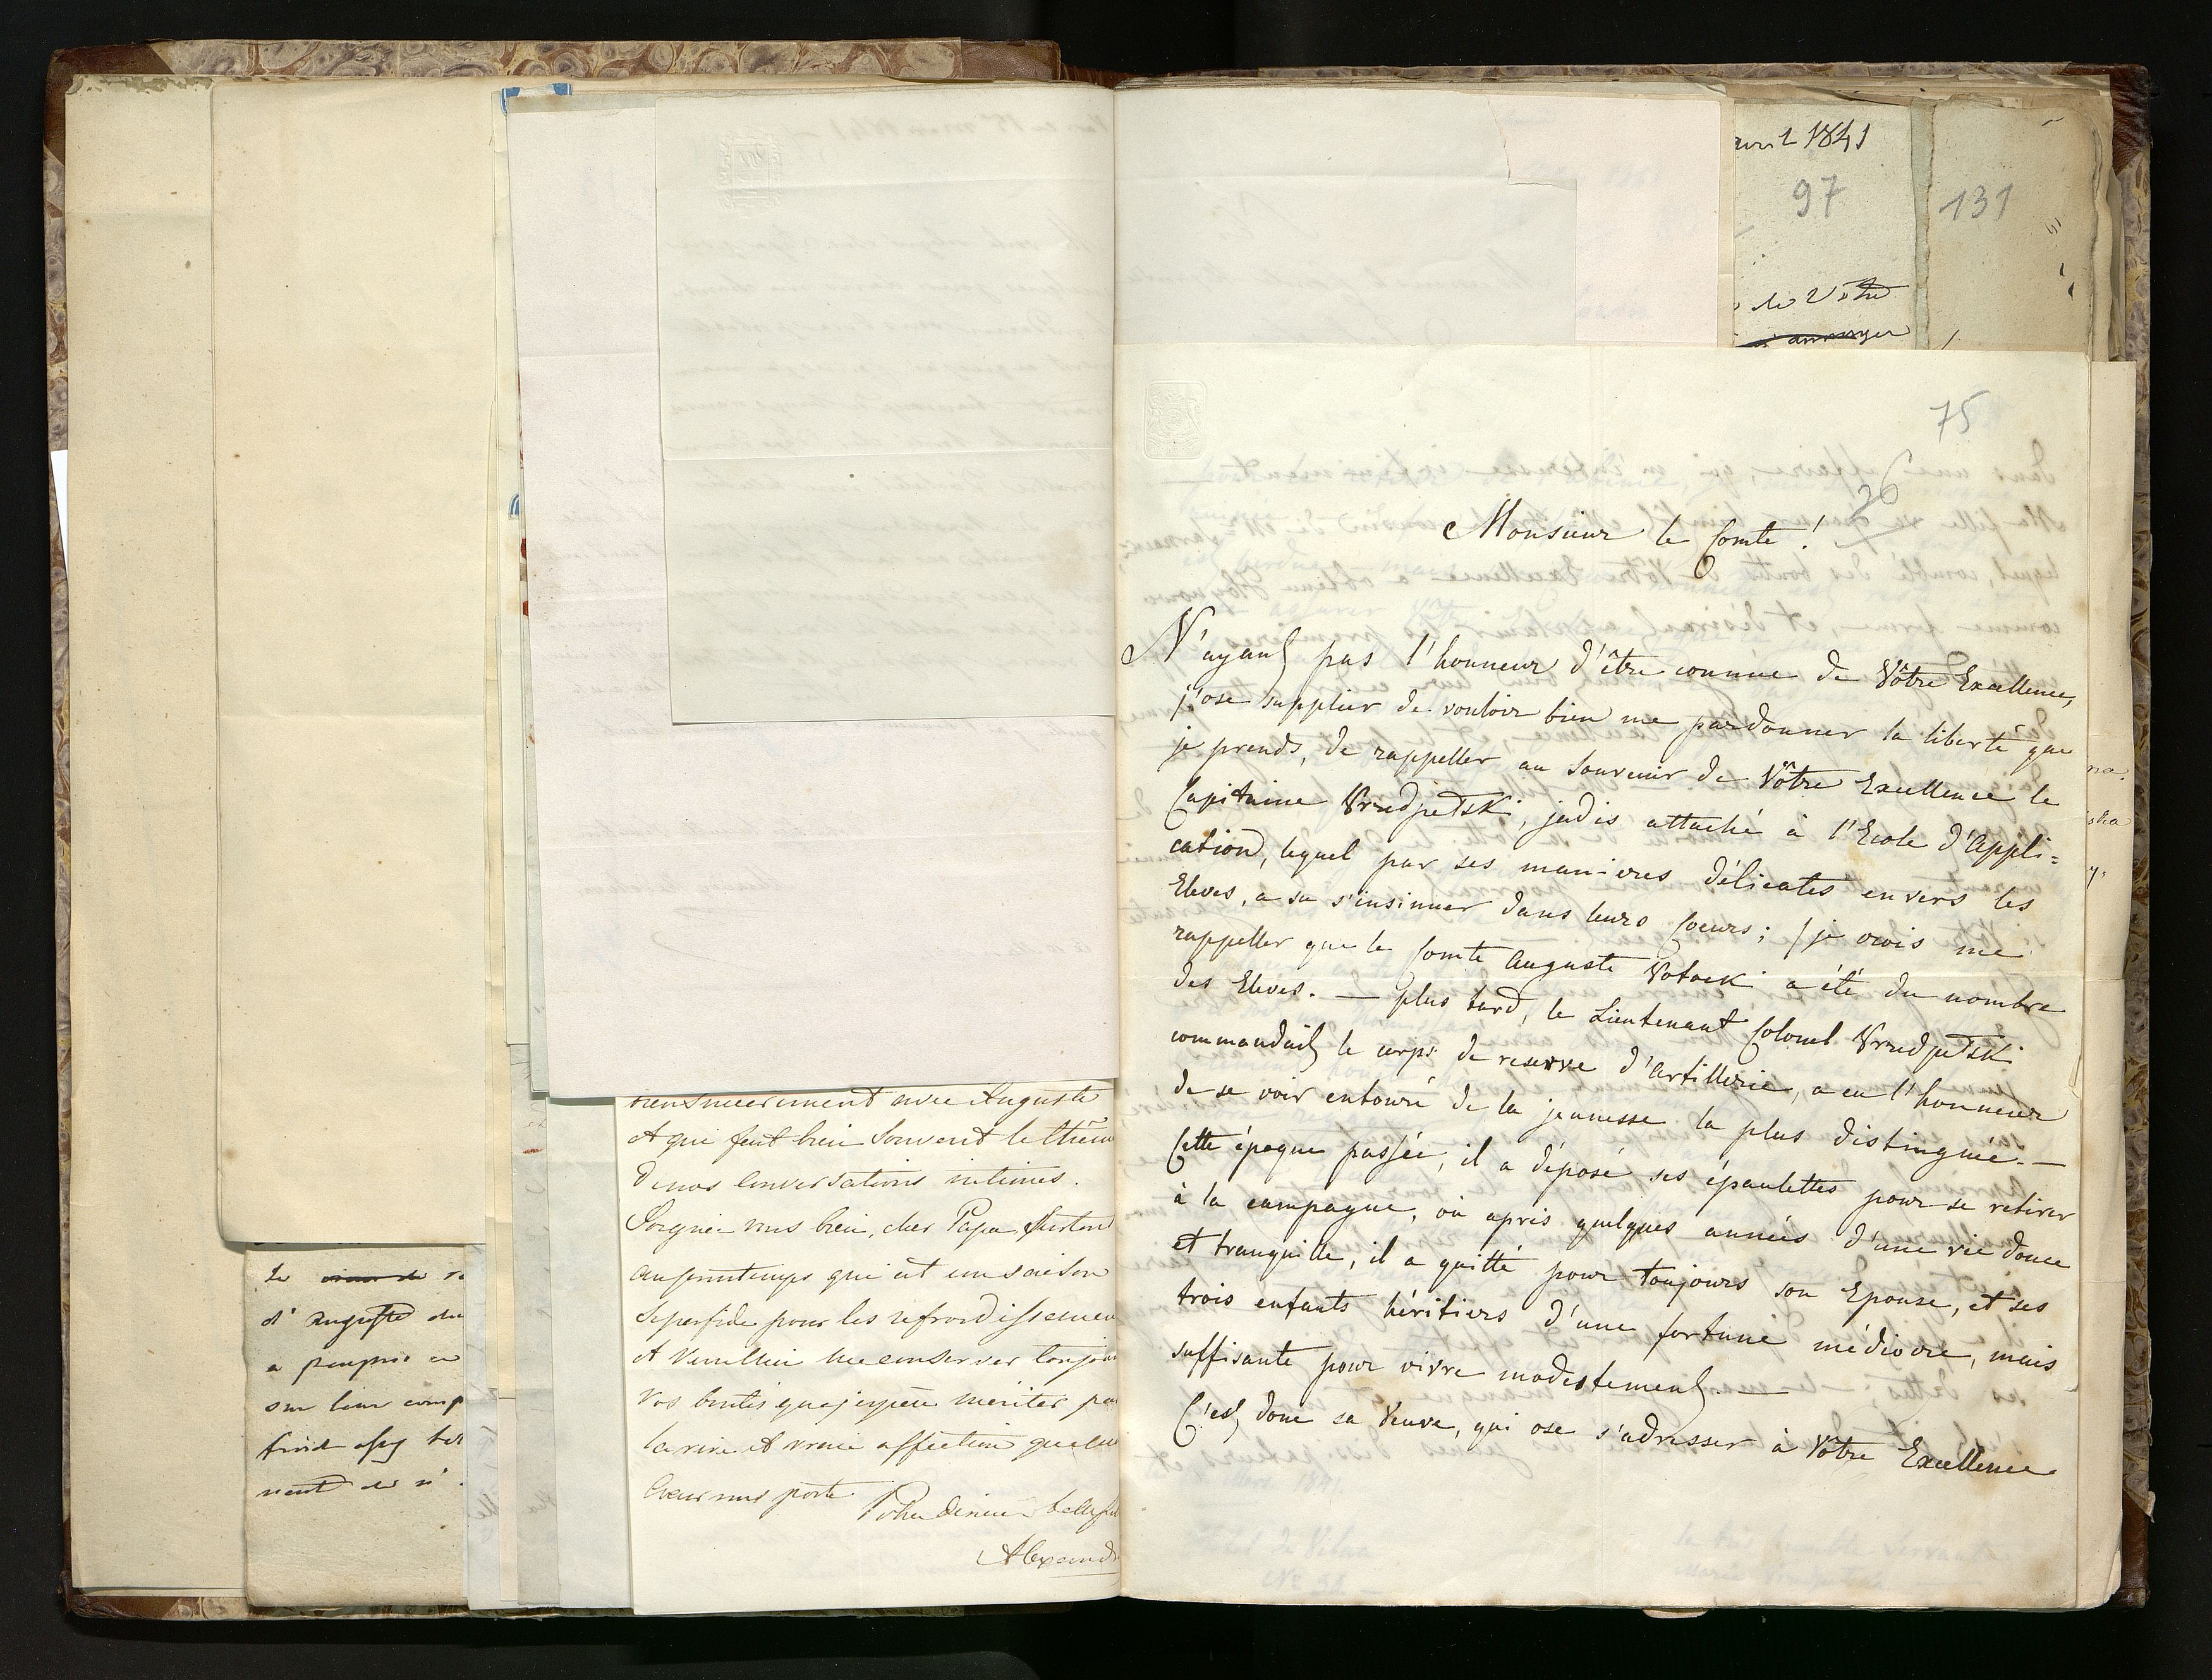 d'Auguste
sur leur comp
rien sincerement avec Auguste
et qui fait bien souvent le thème
de nos conversations intimes.
Soignez vous bien, cher Papa, surtout
au printemps qui est une saison
si perfide pour les refroidissemen
et veuillez me conserver toujours
vos bontés que j'espère mériter par
la vive et vraie affection que
coeur vous porte
Alexand
avril 1841
97
131
de Votre
75
26
Monsieur le Comte!
N'ayant pas l'honneur d'être connue de Vôtre Excellence,
j'ose supplier de vouloir bien me pardonner la liberté que
je prends, de rappeller au souvenir de Vôtre Excellence le
Capitaine Przedpełski, jadis attaché à l'Ecole d'Appli=
cation, lequel par ses manieres délicates envers les
Eleves, a su s'insinuer dans leurs Coeurs; je crois me
rappeller que le Comte Auguste Potocki a été du nombre
des Eleves. — plus tard, le Lieutenant Colonel Przedpełski
commandait le corps de reserve d'Artillerie, a eu l'honneur
de se voir entouré de la jeunesse la plus distinguée. —
Cette époque passée, il a déposé ses épaulettes pour se retirer
à la campagne, où apris quelques années d'une vie douce
et tranquille, il a quitté pour toujours son Epouse, et ses
trois enfants héritiers d'une fortune médiocre, mais
suffisante pour vivre modestement. —
C'est donc sa Veuve, qui ose s'adresser à Vôtre Excellence